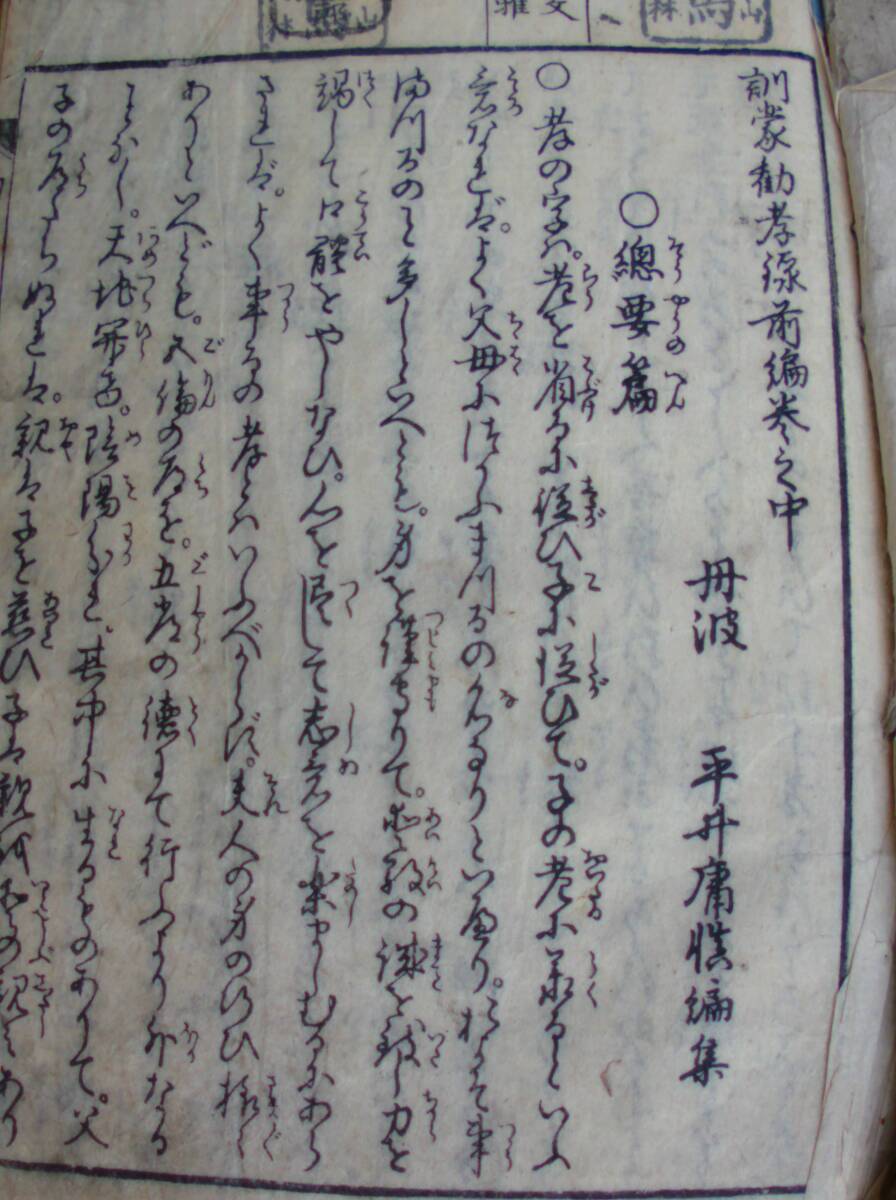 訓蒙勧孝録前編巻之中
丹波 平井庸慎編集
○總要篇
○孝の字ハ。老を省るに从ひ子に从ひて。子の老に承るといふ
意なれば。よく父母につかふまつるの名なりといへり。おほよそ事
まつるのミ多しといへども。身を謹守りて。愛敬の誠を致し力を
竭して口體をやしなひ。心を尽して志意を楽ましむるにあら
ざれば。よく事るの孝とハいふべからず。夫人の身の行ひ様〻
ありといへども。五倫の道を。五常の徳にて行ふより外なる
ことなし。天地開召。陰陽分れ。其中に生るものありて。父
子の道たちぬれば。親は子を慈ひ子は親